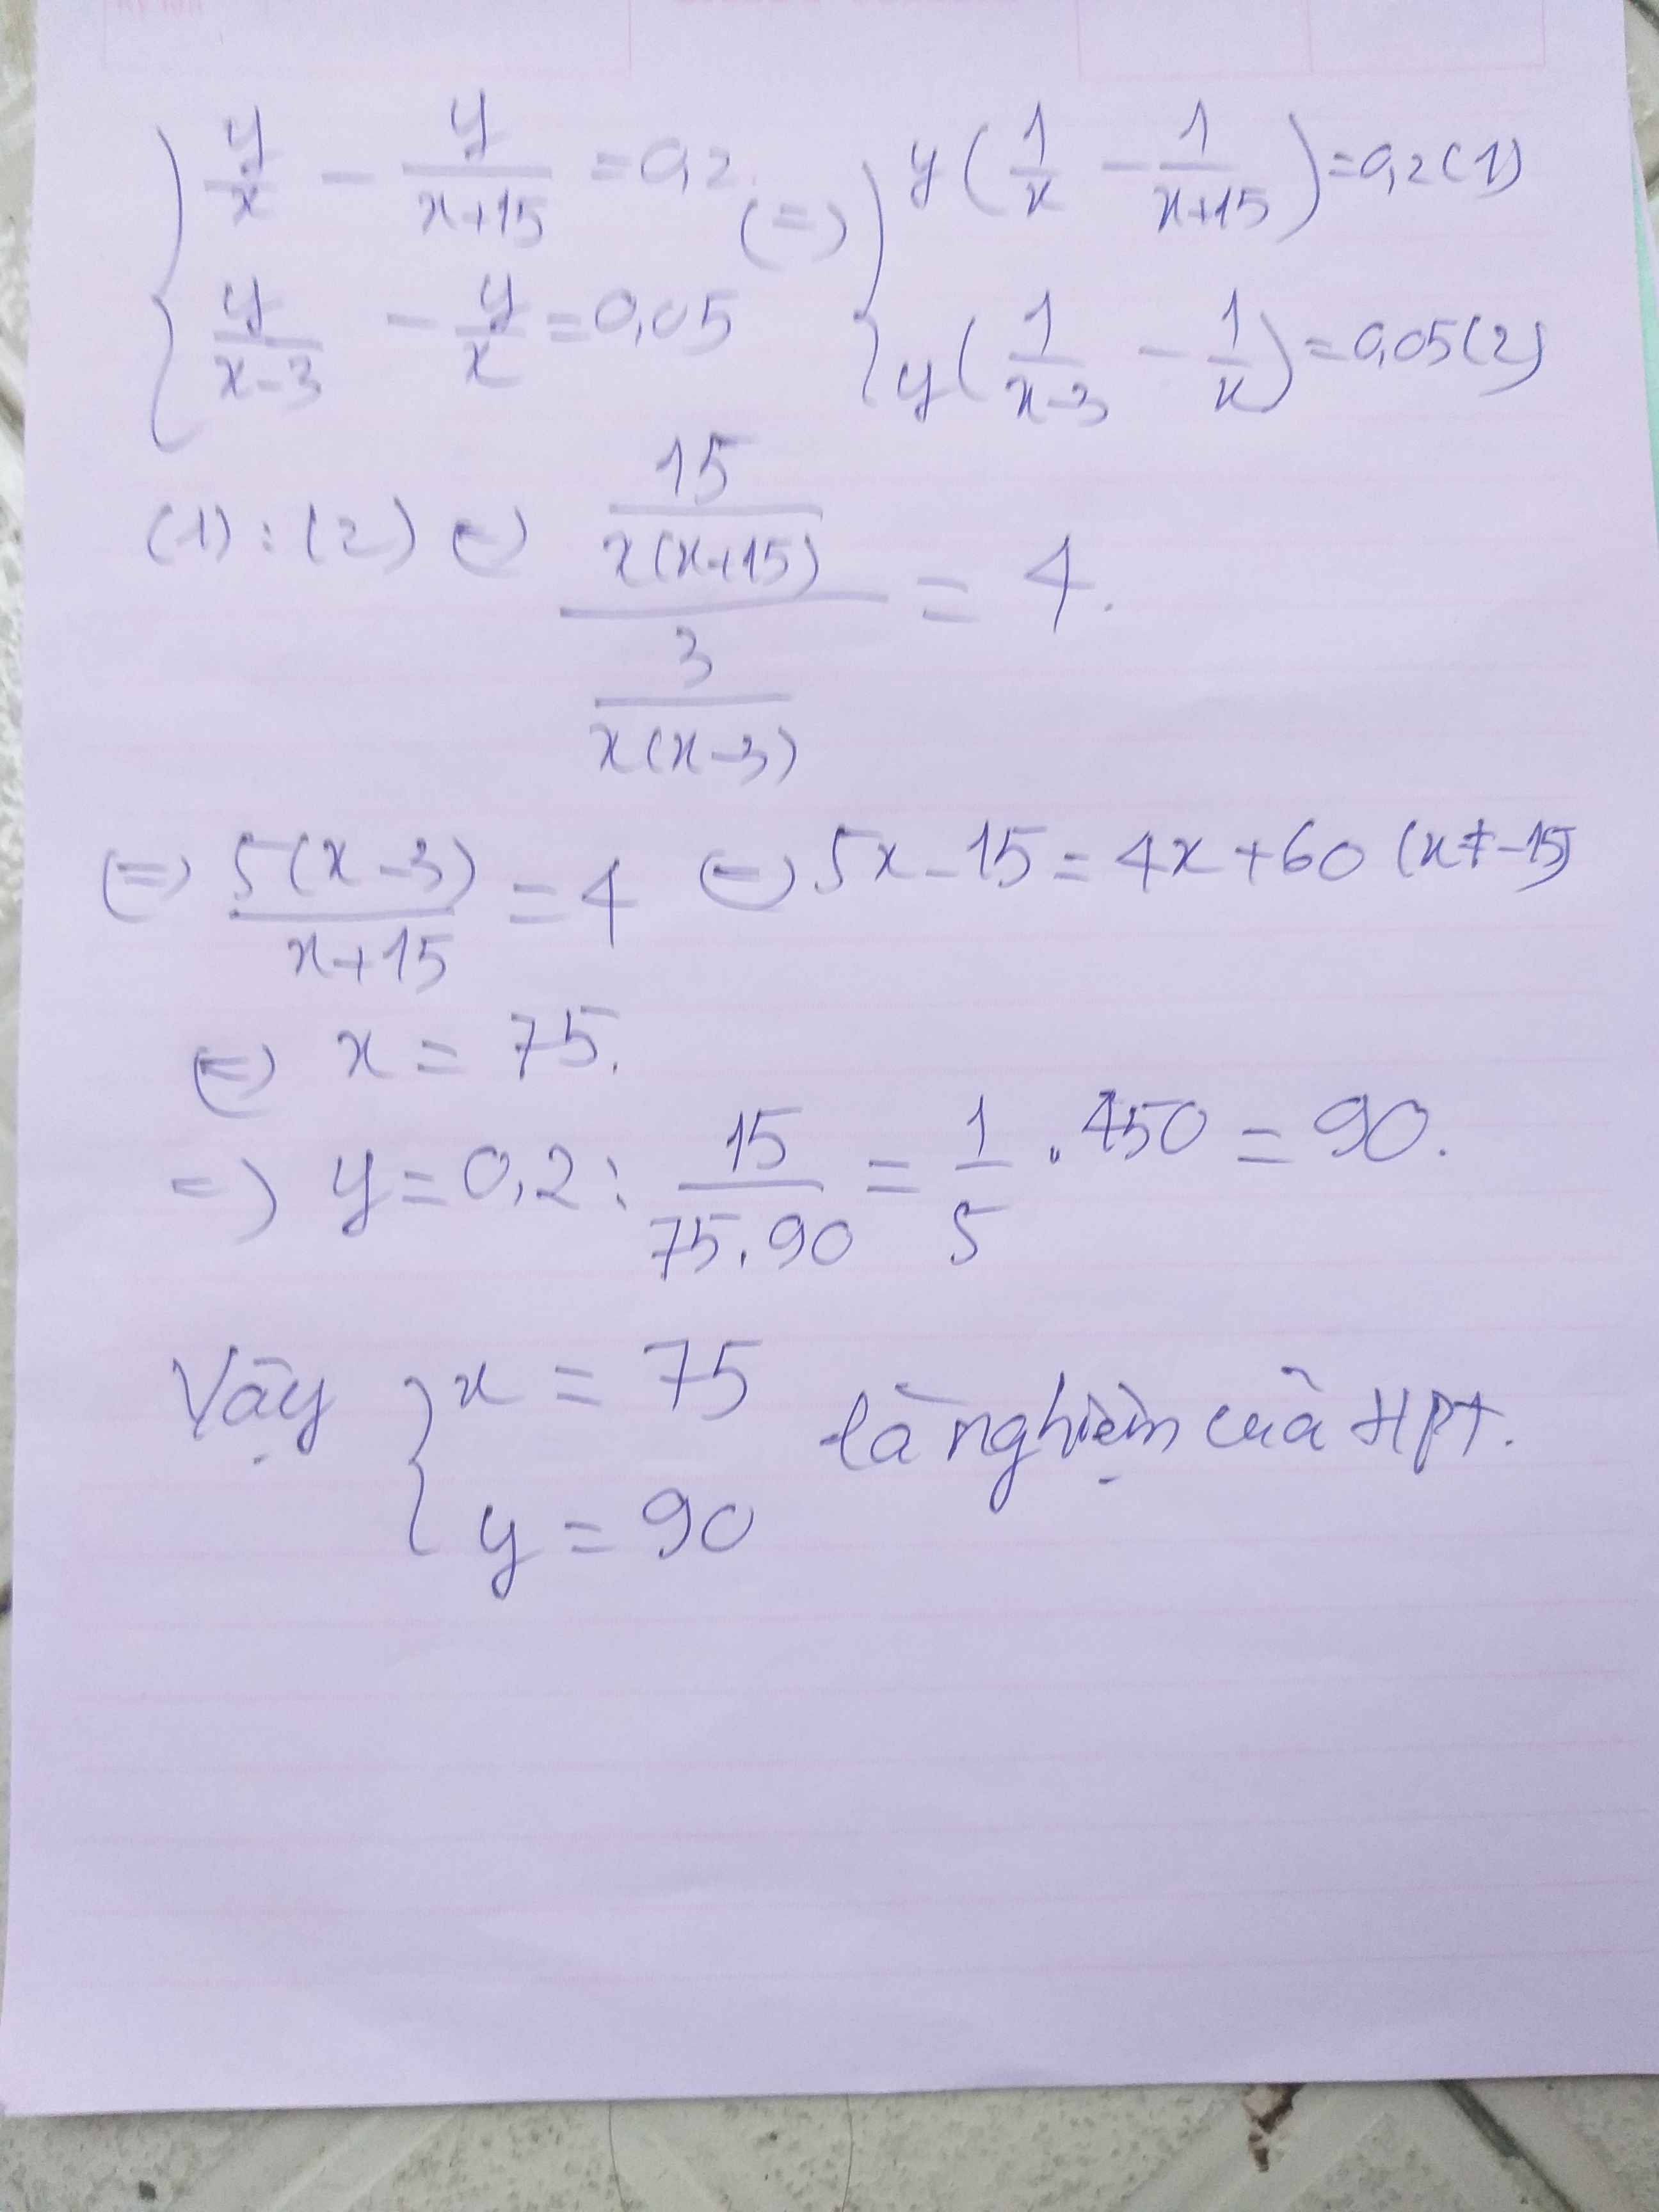 { y/x - y/(x+15) = 0,2 (=) { y(1/x - 1/(x+15)) = 0,2 (1)
{ y/(x-3) - y/x = 0,05 { y(1/(x-3) - 1/x) = 0,05 (2)
(1) : (2) (=) (15/(x(x+15)))/(3/(x(x-3))) = 4.
(=) 5(x-3)/(x+15) = 4 (=) 5x - 15 = 4x + 60 (x ≠ -15)
(=) x = 75.
=) y = 0,2 : 15/(75.90) = 1/5 . 450 = 90.
Vậy { x = 75 là nghiệm của HPT.
{ y = 90